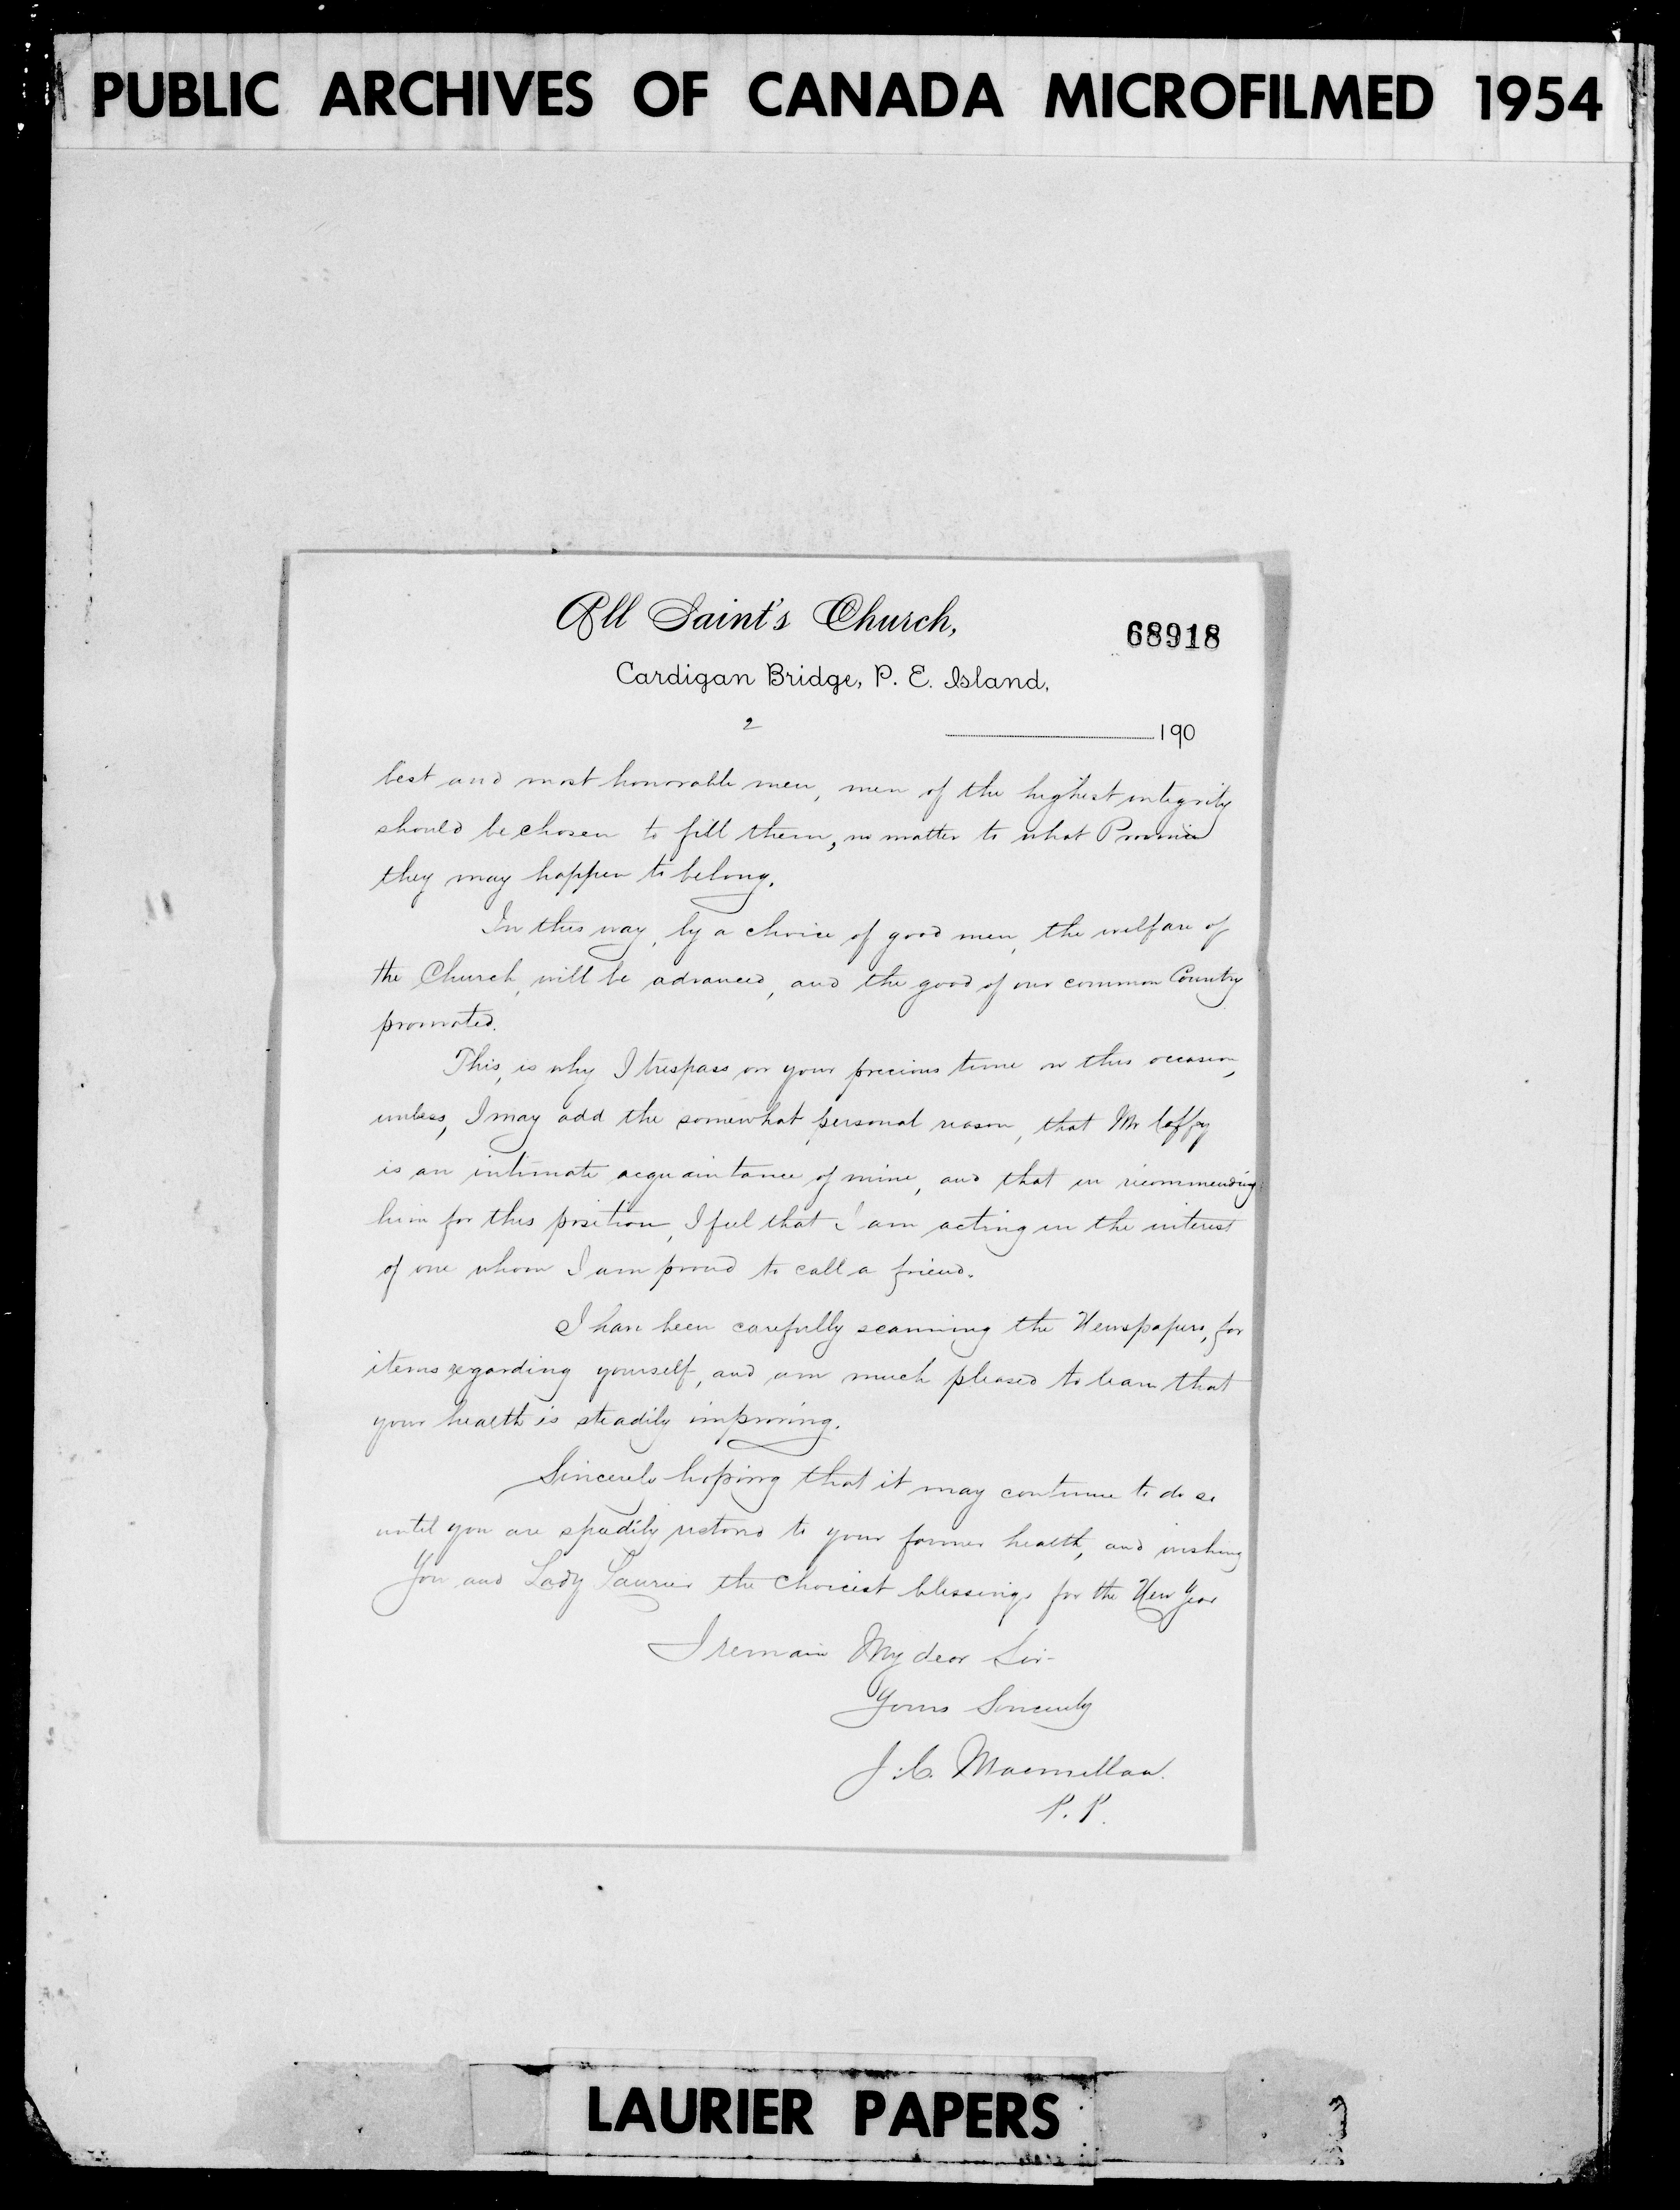 PUBLIC ARCHIVES OF CANADA MICROFILMED 1954
All Saint's Church,
68918
Cardigan Bridge, P. E. Island,
2
190
best and most honorable men, men of the highest integrity
should be chosen to fill them, no matter to what Province
they may happen to belong.
In this way, by a choice of good men, the welfare of
the Church, will be advanced, and the good of our common Country
promoted.
This, is why I trespass on your precious time on this occasion,
unless, I may add the somewhat personal reason, that Mr Coffey
is an intimate acquaintance of mine, and that in recommending
him for this position, I feel that I am acting in the interest
of one whom I am proud to call a friend.
I have been carefully scanning the Newspapers, for
items regarding yourself, and am much pleased to learn that
your health is steadily improving.
Sincerely hoping that it may continue to do so
until you are speedily restored to your former health, and wishing
You and Lady Laurier the choicest blessings for the New Year
I remain My dear Sir-
Yours Sincerely
J. C. Macmillan.
P. P.
LAURIER PAPERS